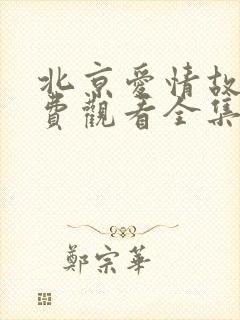 北京爱情故
費觀看全集
鄭宗華